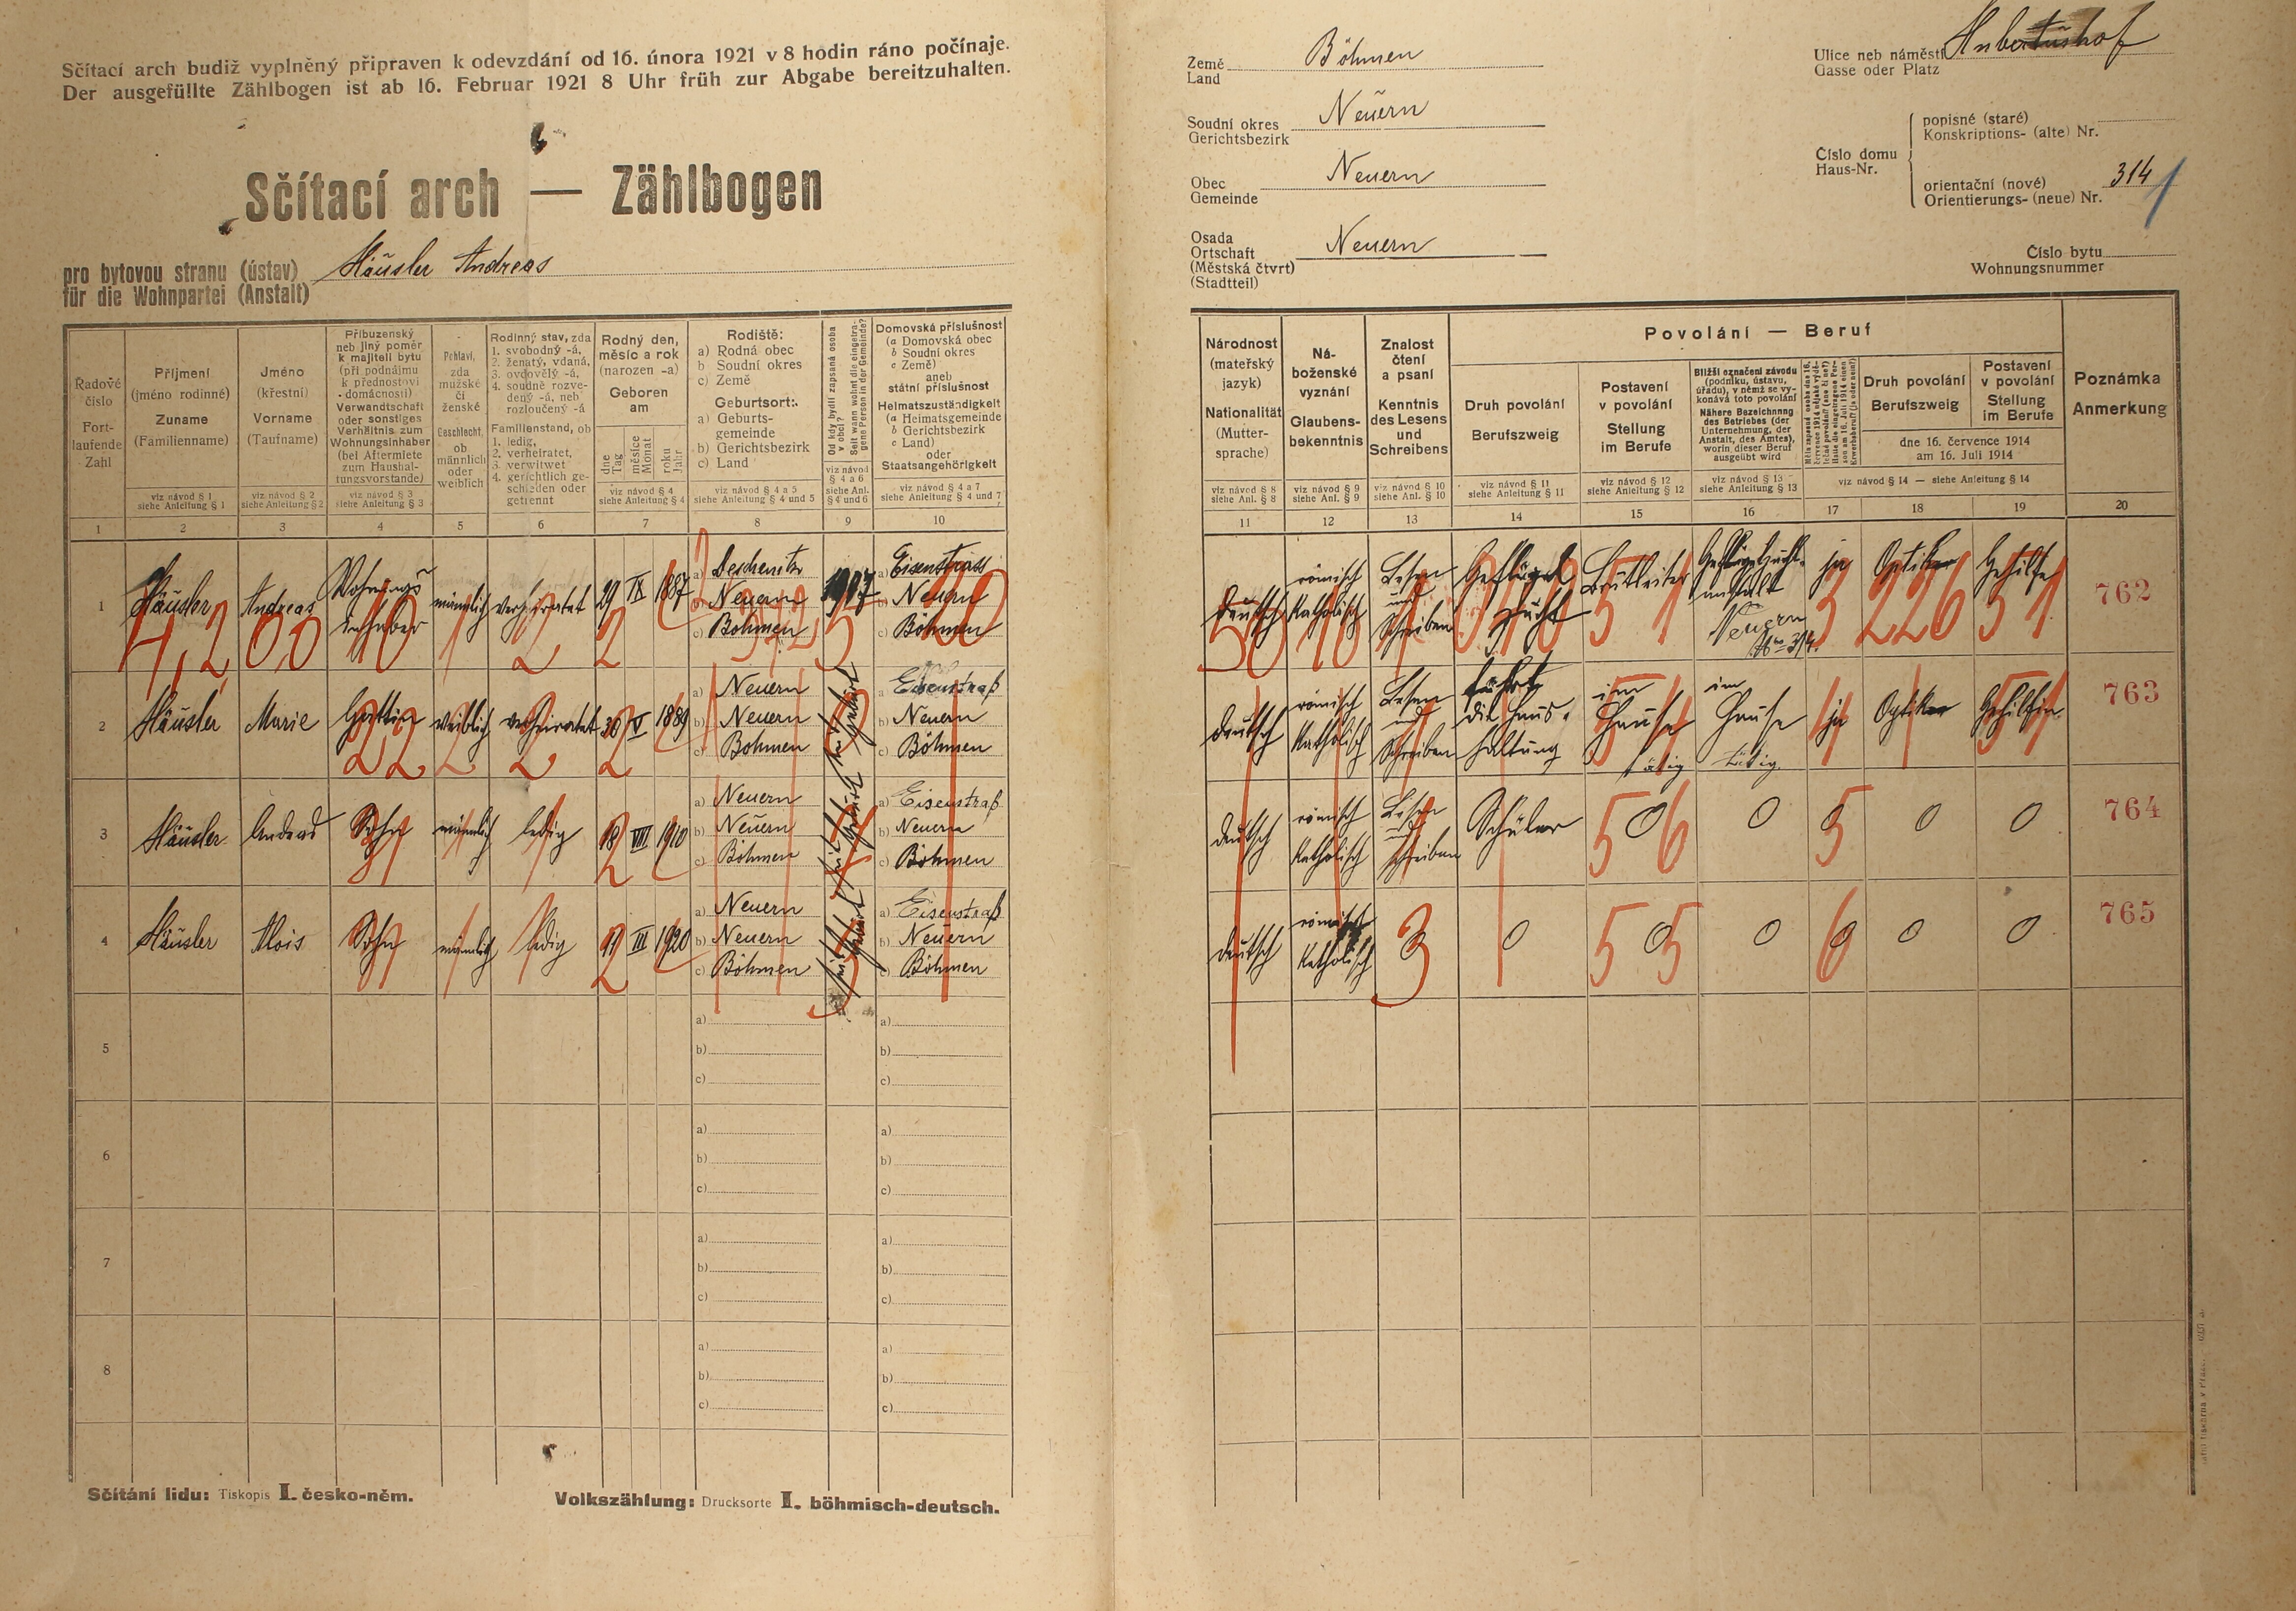 Sčítací arch budiž vyplněný připraven k odevzdání od 16. února 1921 v 8 hodin ráno počínaje.
Der ausgefüllte Zählbogen ist ab 16. Februar 1921 8 Uhr früh zur Abgabe bereitzuhalten.
Sčítací arch — Zählbogen
pro bytovou stranu (ústav) Häusler Andreas
für die Wohnpartei (Anstalt)
Země Böhmen
Land
Soudní okres Neuern
Gerichtsbezirk
Obec Neuern
Gemeinde
Osada
Ortschaft Neuern
(Městská čtvrt)
(Stadtteil)
Ulice neb náměstí Hubertushof
Gasse oder Platz
Číslo domu
Haus-Nr.
popisné (staré)
Konskriptions- (alte) Nr.
orientační (nové) 314
Orientierungs- (neue) Nr.
Číslo bytu
Wohnungsnummer
Řadové
číslo
Fort-
laufende
Zahl
1
Příjmení
(jméno rodinné)
Zuname
(Familienname)
viz návod § 1
siehe Anleitung § 1
2
Jméno
(křestní)
Vorname
(Taufname)
viz návod § 2
siehe Anleitung § 2
3
Příbuzenský
neb jiný poměr
k majiteli bytu
(při podnájmu
k přednostovi
domácnosti)
Verwandtschaft
oder sonstiges
Verhältnis zum
Wohnungsinhaber
(bei Aftermiete
zum Haushal-
tungsvorstande)
viz návod § 3
siehe Anleitung § 3
4
Pohlaví,
zda
mužské
či
ženské
Geschlecht,
ob
männlich
oder
weiblich
5
Rodinný stav, zda
1. svobodný -á,
2. ženatý, vdaná,
3. ovdovělý -á,
4. soudně rozve-
dený -á, neb
rozloučený -á
Familienstand, ob
1. ledig,
2. verheiratet,
3. verwitwet
4. gerichtlich ge-
schieden oder
getrennt
6
Rodný den,
měsíc a rok
(narozen -a)
Geboren
am
dne
Tag
měsíce
Monat
roku
Jahr
viz návod § 4
siehe Anleitung § 4
7
Rodiště:
a) Rodná obec
b) Soudní okres
c) Země
Geburtsort:
a) Geburts-
gemeinde
b) Gerichtsbezirk
c) Land
viz návod § 4 a 5
siehe Anleitung § 4 und 5
8
Od kdy bydlí zapsaná osoba
v obci?
Seit wann wohnt die eingetra-
gene Person in der Gemeinde?
viz návod
§ 4 a 6
siehe Anl.
§ 4 und 6
9
Domovská příslušnost
(a Domovská obec
b Soudní okres
c Země)
aneb
státní příslušnost
Heimatszuständigkeit
(a Heimatsgemeinde
b Gerichtsbezirk
c Land)
oder
Staatsangehörigkeit
viz návod § 4 a 7
siehe Anleitung § 4 und 7
10
Národnost
(mateřský
jazyk)
Nationalität
(Mutter-
sprache)
viz návod § 8
siehe Anl. § 8
11
Ná-
boženské
vyznání
Glaubens-
bekenntnis
viz návod § 9
siehe Anl. § 9
12
Znalost
čtení
a psaní
Kenntnis
des Lesens
und
Schreibens
viz návod § 10
siehe Anl. § 10
13
Povolání — Beruf
Druh povolání
Berufszweig
viz návod § 11
siehe Anleitung § 11
14
Postavení
v povolání
Stellung
im Berufe
viz návod § 12
siehe Anleitung § 12
15
Bližší označení závodu
(podniku, ústavu,
úřadu), v němž se vy-
konává toto povolání
Nähere Bezeichnung
des Betriebes (der
Unternehmung, der
Anstalt, des Amtes),
worin dieser Beruf
ausgeübt wird
viz návod § 13
siehe Anleitung § 13
16
17
Druh povolání
Berufszweig
18
Postavení
v povolání
Stellung
im Berufe
19
dne 16. července 1914
am 16. Juli 1914
viz návod § 14 — siehe Anleitung § 14
Poznámka
Anmerkung
20
1 Häusler Andreas Wohnungs
inhaber männlich verheiratet 29 IX 1887
a) Deschenitz
b) Neuern
c) Böhmen
1907
a) Eisenstrass
b) Neuern
c) Böhmen
deutsch römisch
katholisch Lesen
und
Schreiben Geflügel
zucht Brutleiter Geflügelzucht-
anstalt
Neuern
No 314 ja Optiker Gehilfe 762
4,2 0,0 10 1 2 2
5 1 3 226 51
2 Häusler Marie Gattin weiblich verheiratet 30 V 1889
a) Neuern
b) Neuern
c) Böhmen
seit Geburt
a) Eisenstraß
b) Neuern
c) Böhmen
deutsch römisch
katholisch Lesen
und
Schreiben führt
die Haus-
haltung im
Hause
tätig im
Hause
tätig ja Optiker Gehilfin 763
22 2 2 2
3 Häusler Andreas Sohn männlich ledig 18 VIII 1910
a) Neuern
b) Neuern
c) Böhmen
seit Geburt
a) Eisenstraß
b) Neuern
c) Böhmen
deutsch römisch
katholisch Lesen
und
schreiben Schüler 0 0 0 0 764
5 6 5
4 Häusler Alois Sohn männlich ledig 11 III 1920
a) Neuern
b) Neuern
c) Böhmen
seit Geburt
a) Eisenstraß
b) Neuern
c) Böhmen
deutsch römisch
katholisch 0 0 0 0 0 0 0 765
3 5 5 6
5
a)
b)
c)
a)
b)
c)
6
a)
b)
c)
a)
b)
c)
7
a)
b)
c)
a)
b)
c)
8
a)
b)
c)
a)
b)
c)
Sčítání lidu: Tiskopis I. česko-něm.
Volkszählung: Drucksorte I. böhmisch-deutsch.